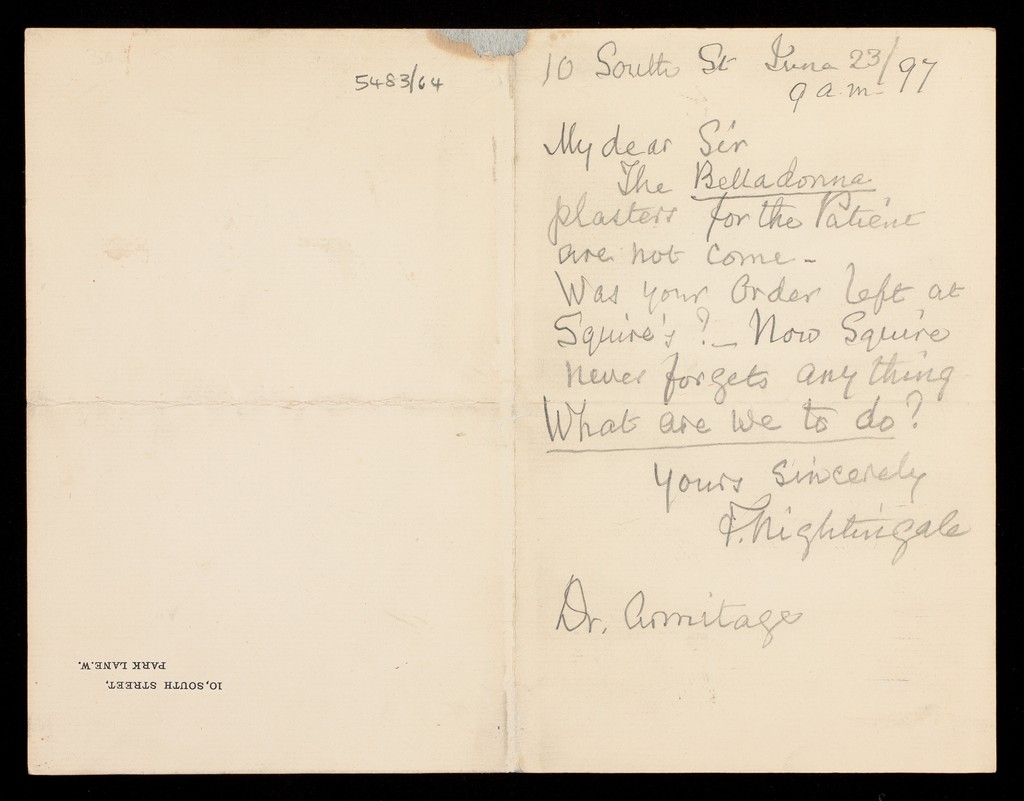 5483/64
10, SOUTH STREET,
PARK LANE. W.
10 South St June 23/97
9 a.m.
My dear Sir
The Belladonna
plasters for the Patient
are not come -
Was your Order left at
Squire's? - Now Squire
never forgets any thing
What are we to do?
Yours sincerely
F. Nightingale
Dr. Armitage